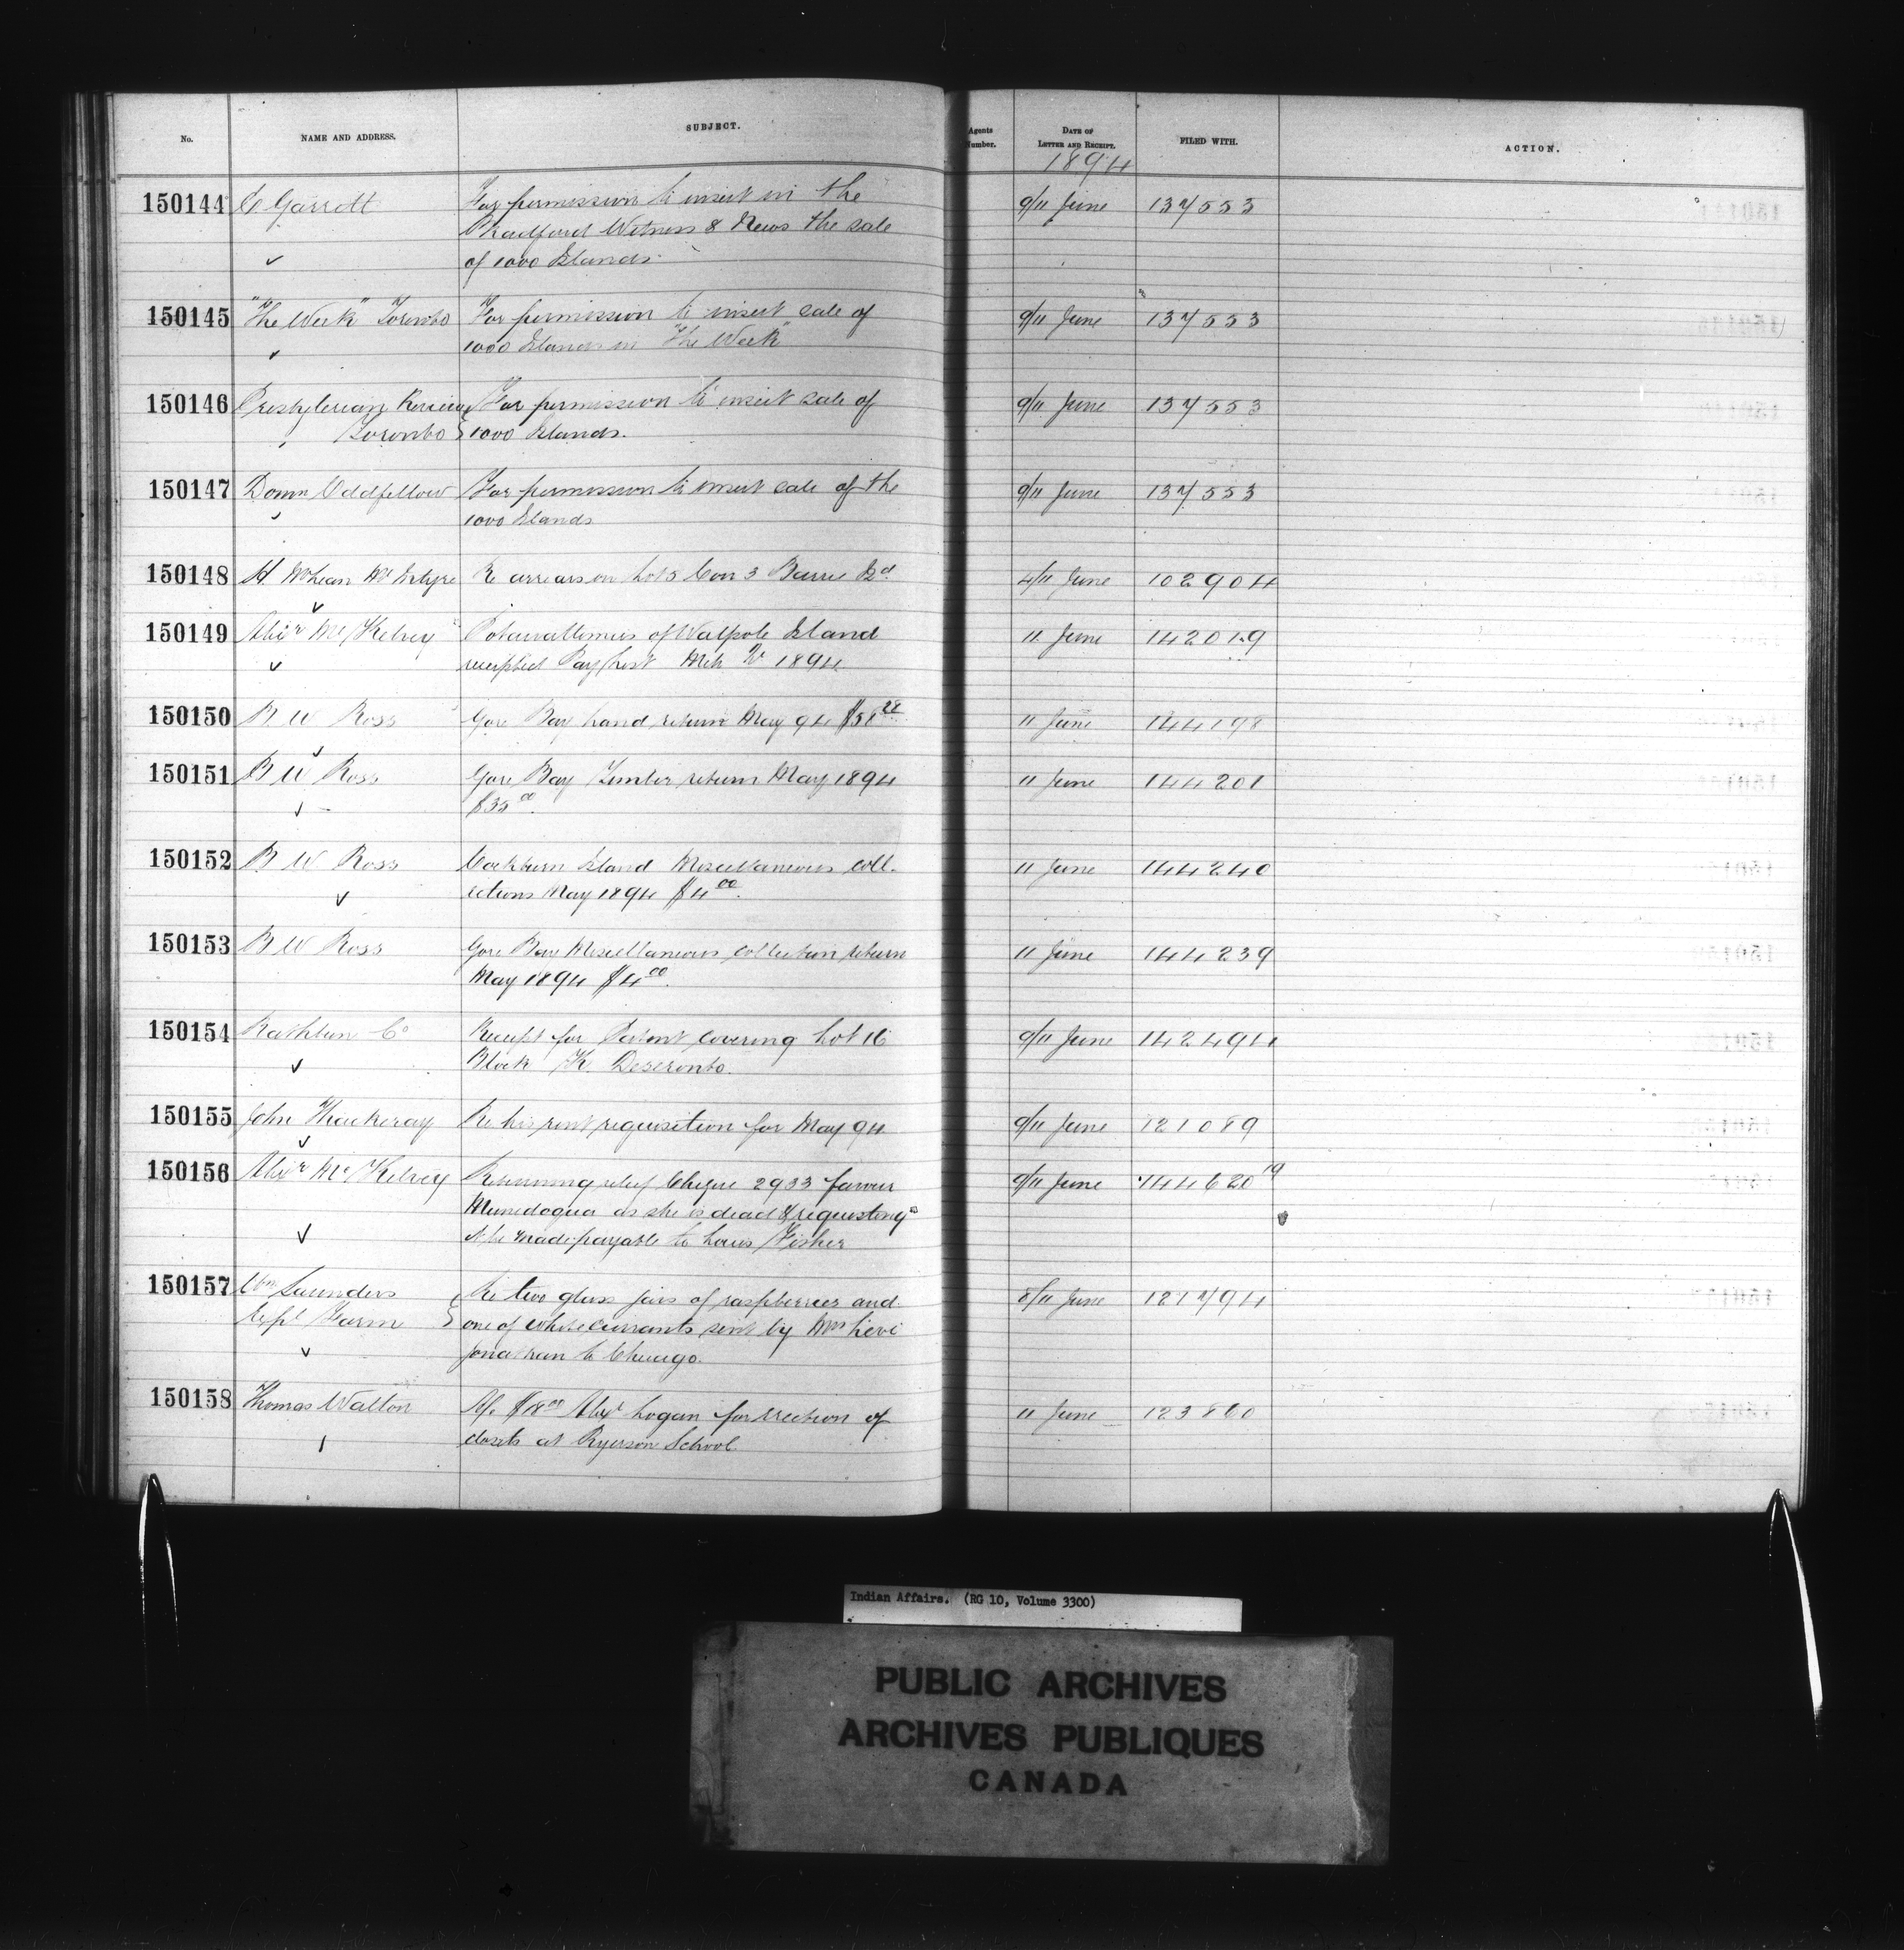 No. NAME AND ADDRESS. SUBJECT. Agents Number. DATE OF LETTER AND RECEIPT. FILED WITH. ACTION.
1894
150144 C Garrett For permission to insert in the 9/11 June 137553
Bradford Witness & News the sale
of 1000 Islands
150145 "The Week" Toronto For permission to insert sale of 9/11 June 137553
1000 Islands in "The Week"
150146 Presbyterian Review For permission to insert sale of 9/11 June 137553
Toronto 1000 Islands.
150147 Domn Oddfellow For permission to insert sale of the 9/11 June 137553
1000 Islands
150148 H McLean McIntyre Re arrears on Lot 5 Con 3 Barrie Id 4/11 June 102904
150149 Alexr McKelvey Pottawattomies of Walpole Island 11 June 142019
receipted Pay List Mch 1894
150150 B W Ross Gore Bay Land return May 94 $58.28 11 June 144198
150151 B W Ross Gore Bay Timber return May 1894 11 June 144201
$35.00
150152 B W Ross Cockburn Island Miscellaneous coll- 11 June 144240
ections May 1894 $4.00
150153 B W Ross Gore Bay Miscellaneous collection return 11 June 144239
May 1894 $4.00
150154 Rathbun Co Receipt for Patent covering Lot 16 9/11 June 142494
Block K. Deseronto.
150155 John Thackeray Re his rent requisition for May 94 9/11 June 121089
150156 Alexr McKelvey Returning relief Cheque 2933 favour 9/11 June 144620
as she is dead & requesting
it be made payable to Louis Fisher
150157 Wm Saunders Re two glass jars of raspberries and 8/11 June 121794
Expl Farm one of white currants sent by Mrs Levi
Jonathan to Chicago.
150158 Thomas Walton A/c $18.00 Alex Logan for erection of 11 June 123860
closets at Ryerson School
Indian Affairs. (RG 10, Volume 3300)
PUBLIC ARCHIVES
ARCHIVES PUBLIQUES
CANADA